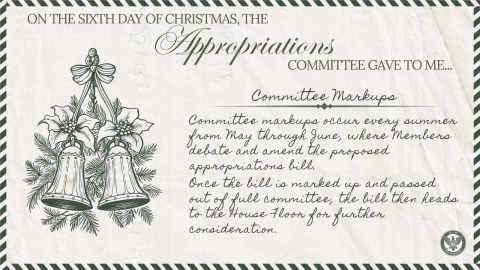 ON THE SIXTH DAY OF CHRISTMAS, THE
Appropriations
COMMITTEE GAVE TO ME...
Committee Markups
Committee markups occur every summer
from May through June, where Members
debate and amend the proposed
appropriations bill.
Once the bill is marked up and passed
out of full committee, the bill then heads
to the House Floor for further
consideration.